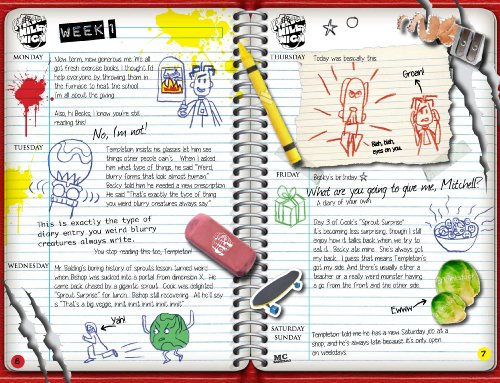 WEEK 1
MONDAY
New term, new generous me. We all
got fresh exercise books. I thought I'd
help everyone by throwing them in
the furnace to heat the school.
I'm all about the giving.
Also, hi Becko, I know you're still
reading this!
No, I'm not!
TUESDAY
Templeton insists his glasses let him see
things other people can't. When I asked
him what type of things, he said "Weird,
blurry forms that look almost human."
Becky told him he needed a new prescription.
He said "That's exactly the type of thing
you weird blurry creatures always say."
This is exactly the type of
diary entry you weird blurry
creatures always write.
You stop reading this too, Templeton!
WEDNESDAY
Mr. Balding's boring history of sprouts lesson turned weird
when Bishop was sucked into a portal from dimension X. He
came back chased by a gigantic sprout. Cook was delighted.
"Sprout Surprise" for lunch. Bishop still recovering. All he'll say
is "That's a big veggie, innit innit innit innit innit."
Yah!
6
THURSDAY
Today was basically this:
Groan!
Blah, blah,
eyes on you.
FRIDAY
Becky's birthday
What are you going to give me, Mitchell?
A diary of your own.
Day 3 of Cook's "Sprout Surprise"
It's becoming less surprising, though I still
enjoy how it talks back when we try to
eat it. Becky ate mine. She's always got
my back. I guess that means Templeton's
got my side. And there's usually either a
teacher or a really weird monster having
a go from the front and the other side.
Ewww
SATURDAY
SUNDAY
Templeton told me he has a new Saturday job at a
shop, and he's always late because it's only open
on weekdays.
MC
7